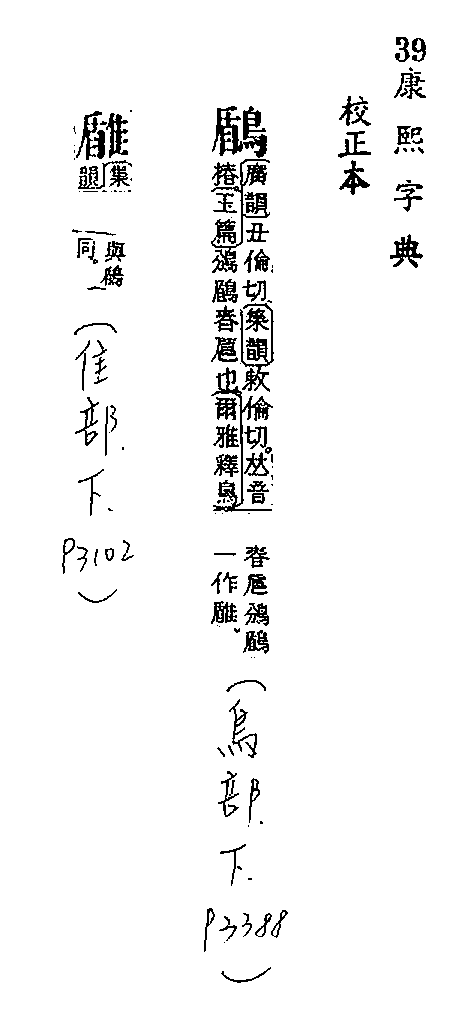 39康熙字典
校正本
廣韻丑倫切集韻敕倫切。𠀤音
椿玉篇鳻春鳸也爾雅釋鳥
春鳸鳻
一作。
（鳥部.下.P3388）
集
韻
與
同。
（隹部.下.P3102）